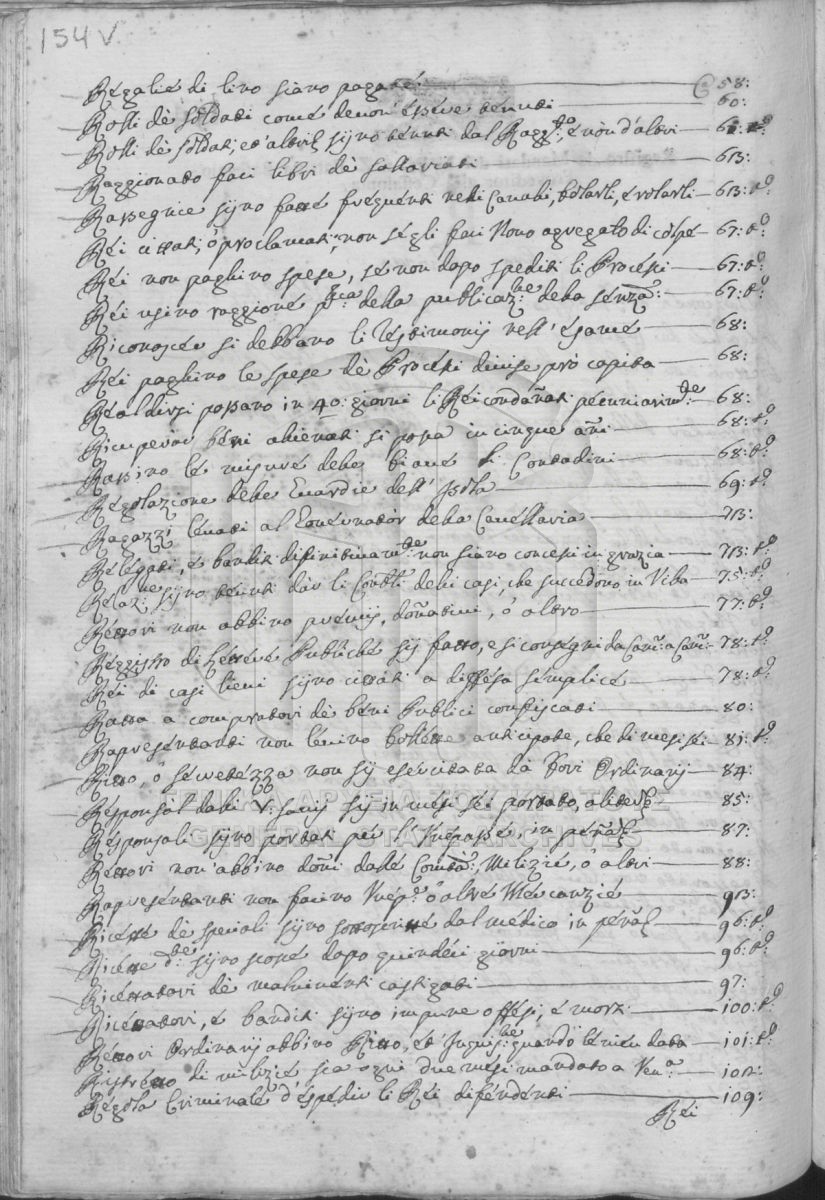 154 v
Regalie di lino siano pagate 58:
Rolli de soldati come devon' essere tenuti 60:
Rolli de soldati, et altri sijno tenuti dal Ragg:to, e non d'altri 61: t.o
Raggionato faci libri de sallariati 63:
Rassegnie sijno fatte frequenti nelli 63: t.o
Rei cittati, o proclamati, non se gli faci Novo agregato di colpe 67: t.o
Rei non paghino spese, se non dopo spediti li Processi 67: t.o
Rei usino raggione della publicaz:ne della senza: 67: t.o
Riconoscer si debbano li Testimonij nell' esame 68:
Rei paghino le spese de Processi divise pro capita 68:
Realdirsi possano in 40: giorni li Rei condañati pecuniariam:te 68:
Ricuperar beni alienati si possa in cinque añi 68: t.o
li Contadini 68: t.o
Regolazione delle Guardie dell' Isola 69: t.o
Ragazzi levati al Governator della Cavallaria 73:
Relegati, e banditi difinitivam:te non siano concessi in grazia 73: t.o
Relaz:ne sijno tenuti dar li delli casi, che succedono in Villa 75: t.o
Rettori non abbino premij, donativi, o altro 77: t.o
Reggistro di Lettere Publiche sij fatto, e si consegni da Cam:a a Cam:a 78: t.o
Rei di casi lievi sijno cittati a diffesa semplice 78: t.o
Ratta a compratori de beni Publici confiscati 80:
Rapresentanti non levino bollette anticipate, che di mesi sei 81: t.o
Ritto, o secretezza non sij esercitata da Fori Ordinarij 84:
Responsal dalli V: Savij sij in mesi sei portato, 85:
Responsali sijno portati per l' in 87:
Rettori non abbino doni dalle Milizie, o altri 88:
Rapresentanti non facino o altre Mercanzie 93:
Ricette de speciali sijno sottoscritte dal medico in 96: t.o
Ricette d:te sijno scosse dopo quindeci giorni 96: t.o
Ricettatori de malviventi castigati 97:
Ricettatori, e banditi sijno impune offesi, e morti 100: t.o
Rettori Ordinarij abbino Ritto, et quando le vien data 101: t.o
Ristretto di milizie sia ogni due mesi mandato a Ven:a 102:
Regola Criminale d'espedir li Rei difendenti 109:
Rei
ΓΕΝΙΚΑ ΑΡΧΕΙΑ ΤΟΥ ΚΡΑΤΟΥΣ
GENERAL STATE ARCHIVES